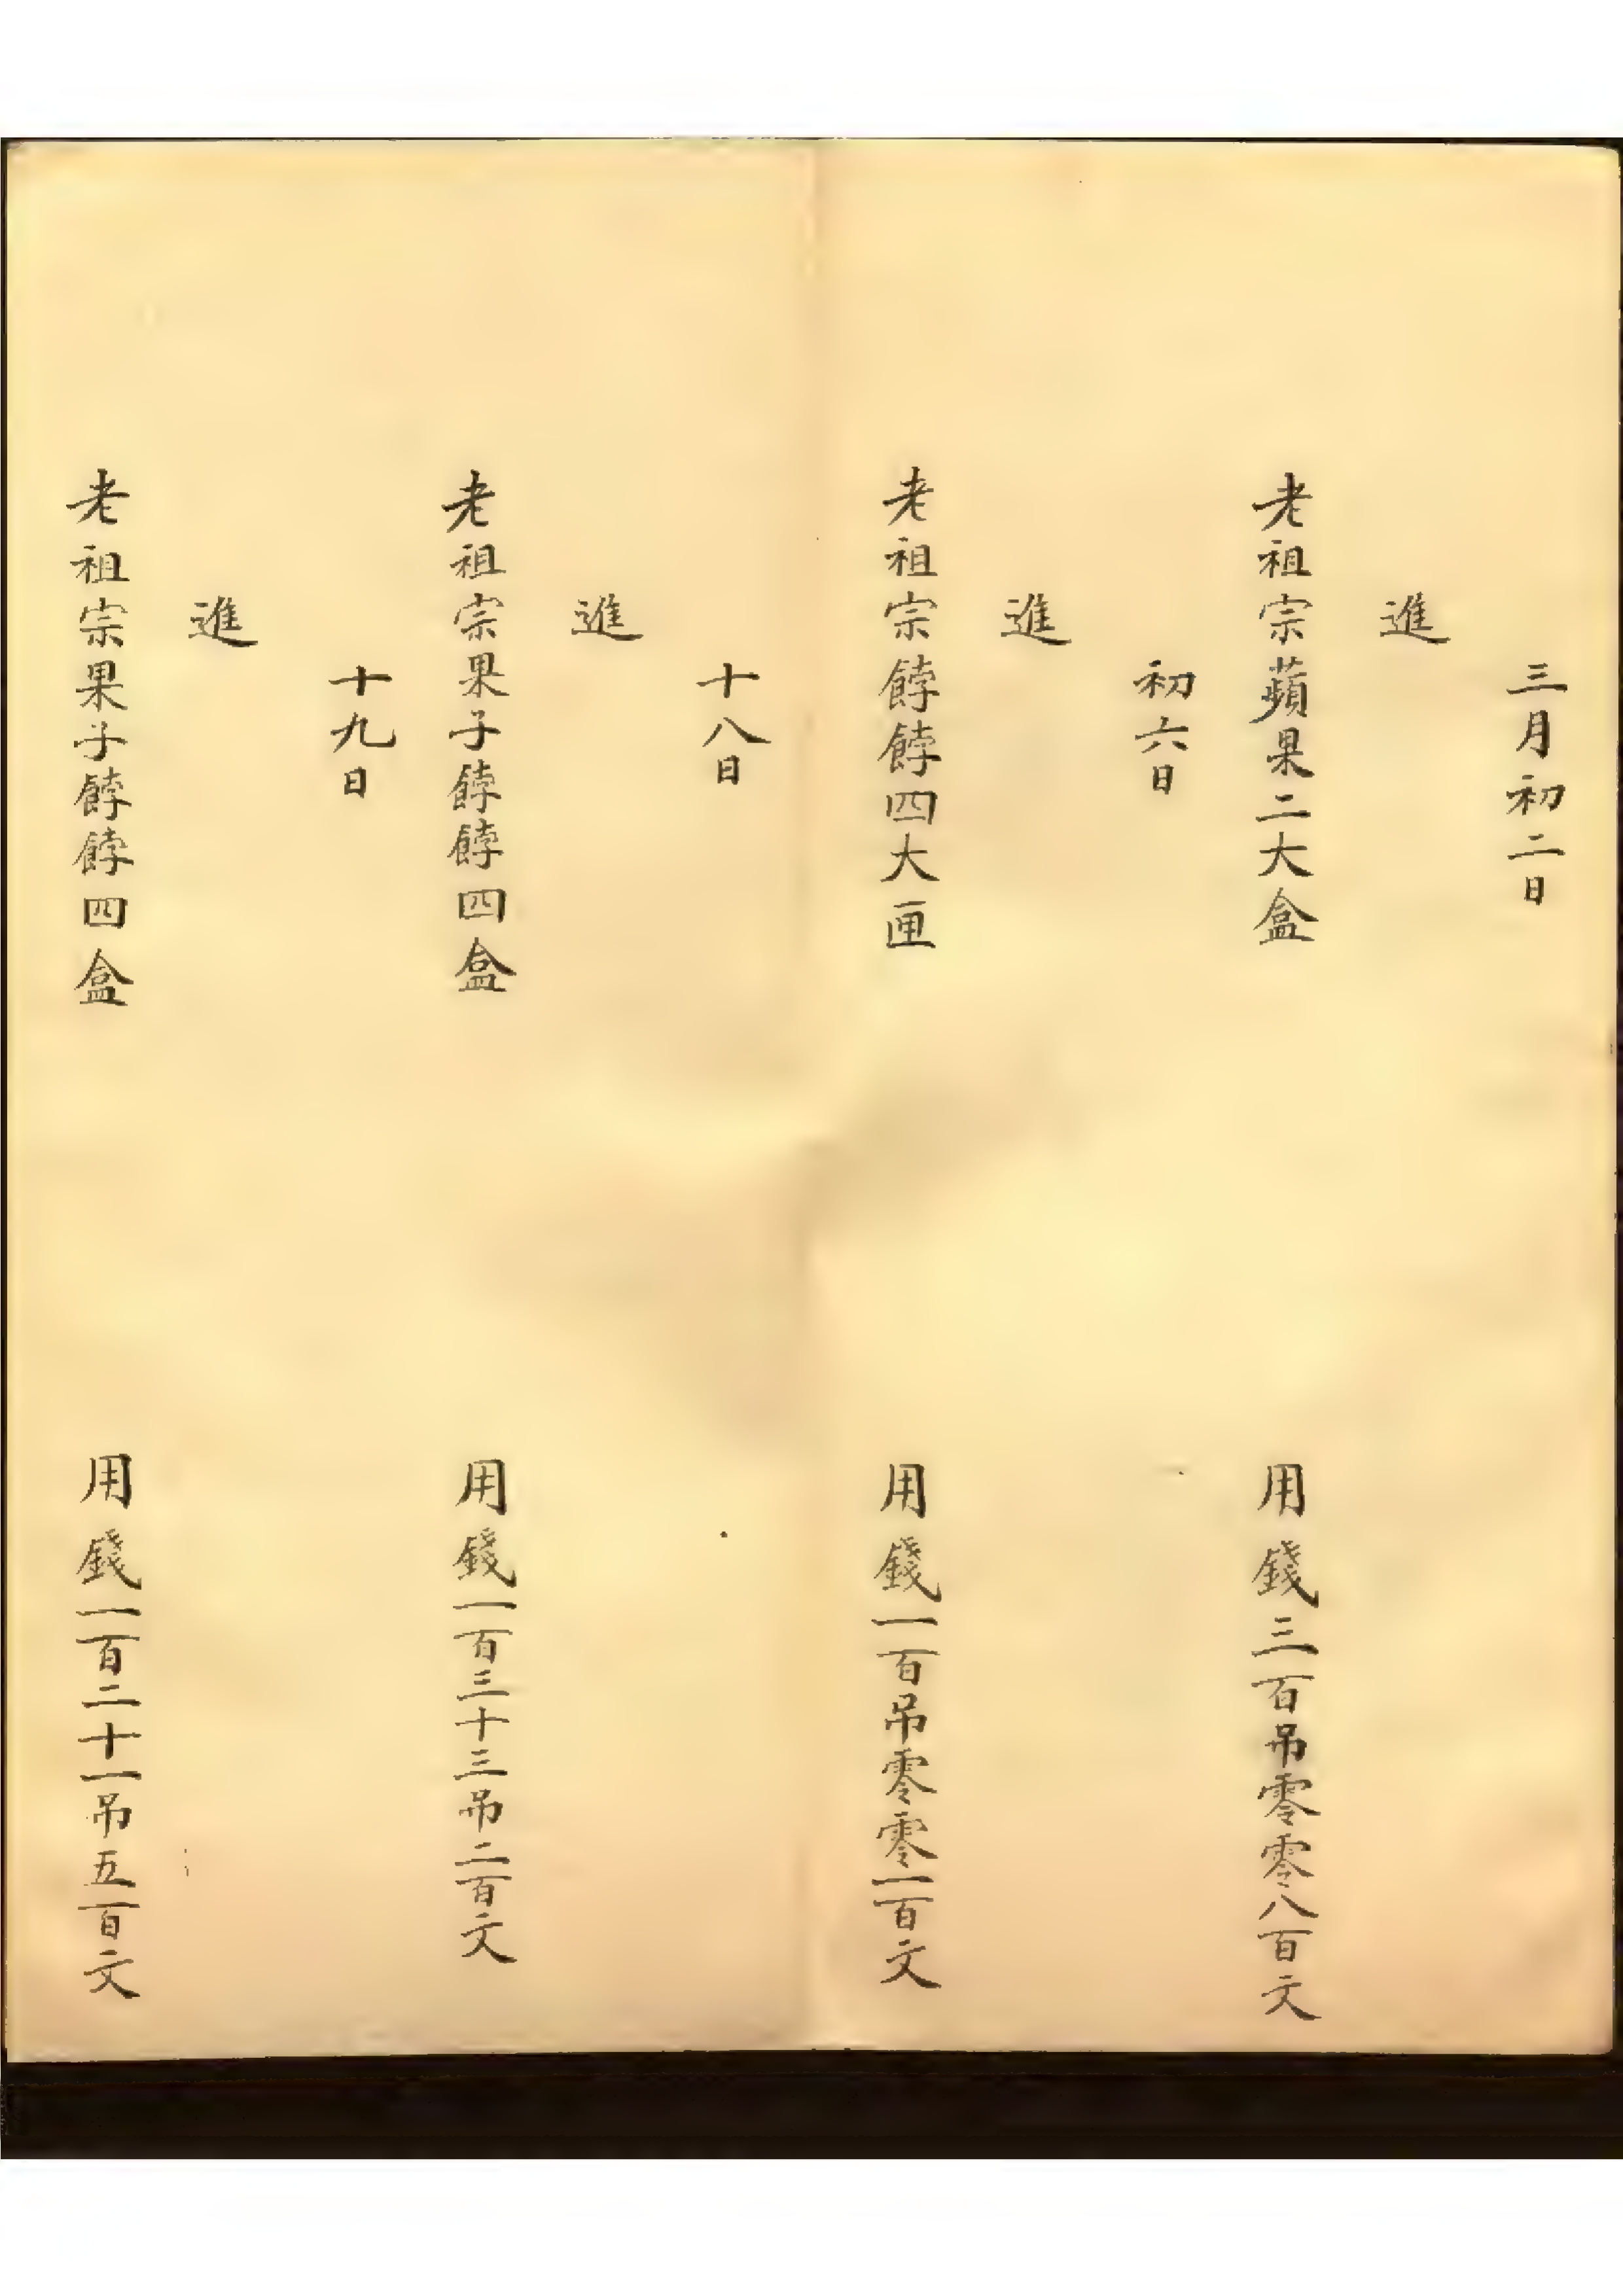 三月初二日
進
老祖宗蘋果二大盒 用錢三百吊零零八百文
初六日
進
老祖宗餑餑四大匣 用錢一百吊零零一百文
十八日
進
老祖宗果子餑餑四盒 用錢一百三十三吊二百文
十九日
進
老祖宗果子餑餑四盒 用錢一百二十一吊五百文